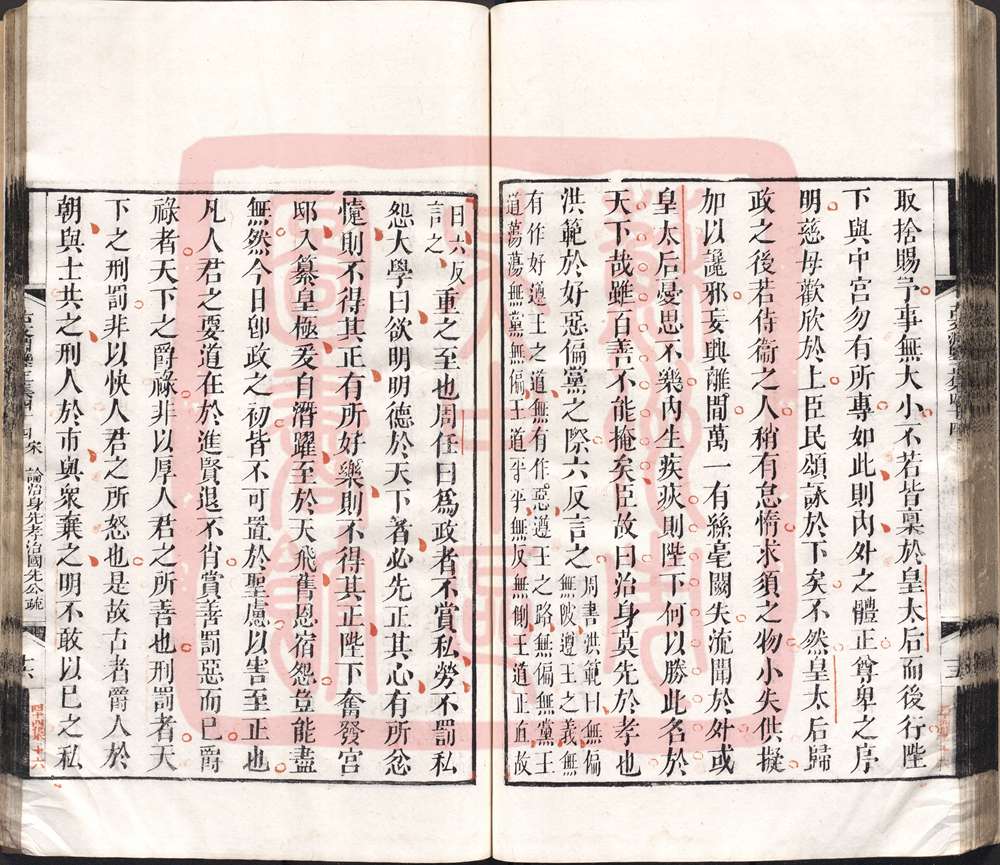 取捨賜予事無大小不若皆稟於皇太后而後行陛
下與中宮勿有所專如此則內外之體正尊卑之序
明慈母歡欣於上臣民頌詠於下矣不然皇太后歸
政之後若侍衞之人稍有怠惰求須之物小失供擬
加以讒邪妄興離間萬一有絲毫闕失流聞於外或
皇太后憂思不樂內生疾疢則陛下何以勝此名於
天下哉雖百善不能掩矣臣故曰治身莫先於孝也
洪範於好惡偏黨之際六反言之
周書洪範曰無偏
無陂遵王之義無
有作好遵王之道無有作惡遵王之路無偏無黨王
道蕩蕩無黨無偏王道平平無反無側王道正直故
曰六反
言之
重之至也周任曰為政者不賞私勞不罰私
怨大學曰欲明明德於天下者必先正其心有所忿
懥則不得其正有所好樂則不得其正陛下奮發宮
邸入纂皇極爰自濳躍至於天飛舊恩宿怨豈能盡
無然今日卽政之初皆不可置於聖慮以害至正也
凡人君之要道在於進賢退不肖賞善罰惡而已爵
祿者天下之爵祿非以厚人君之所善也刑罰者天
下之刑罰非以快人君之所怒也是故古者爵人於
朝與士共之刑人於市與衆棄之明不敢以已之私
宋 論治身先孝治國先公疏